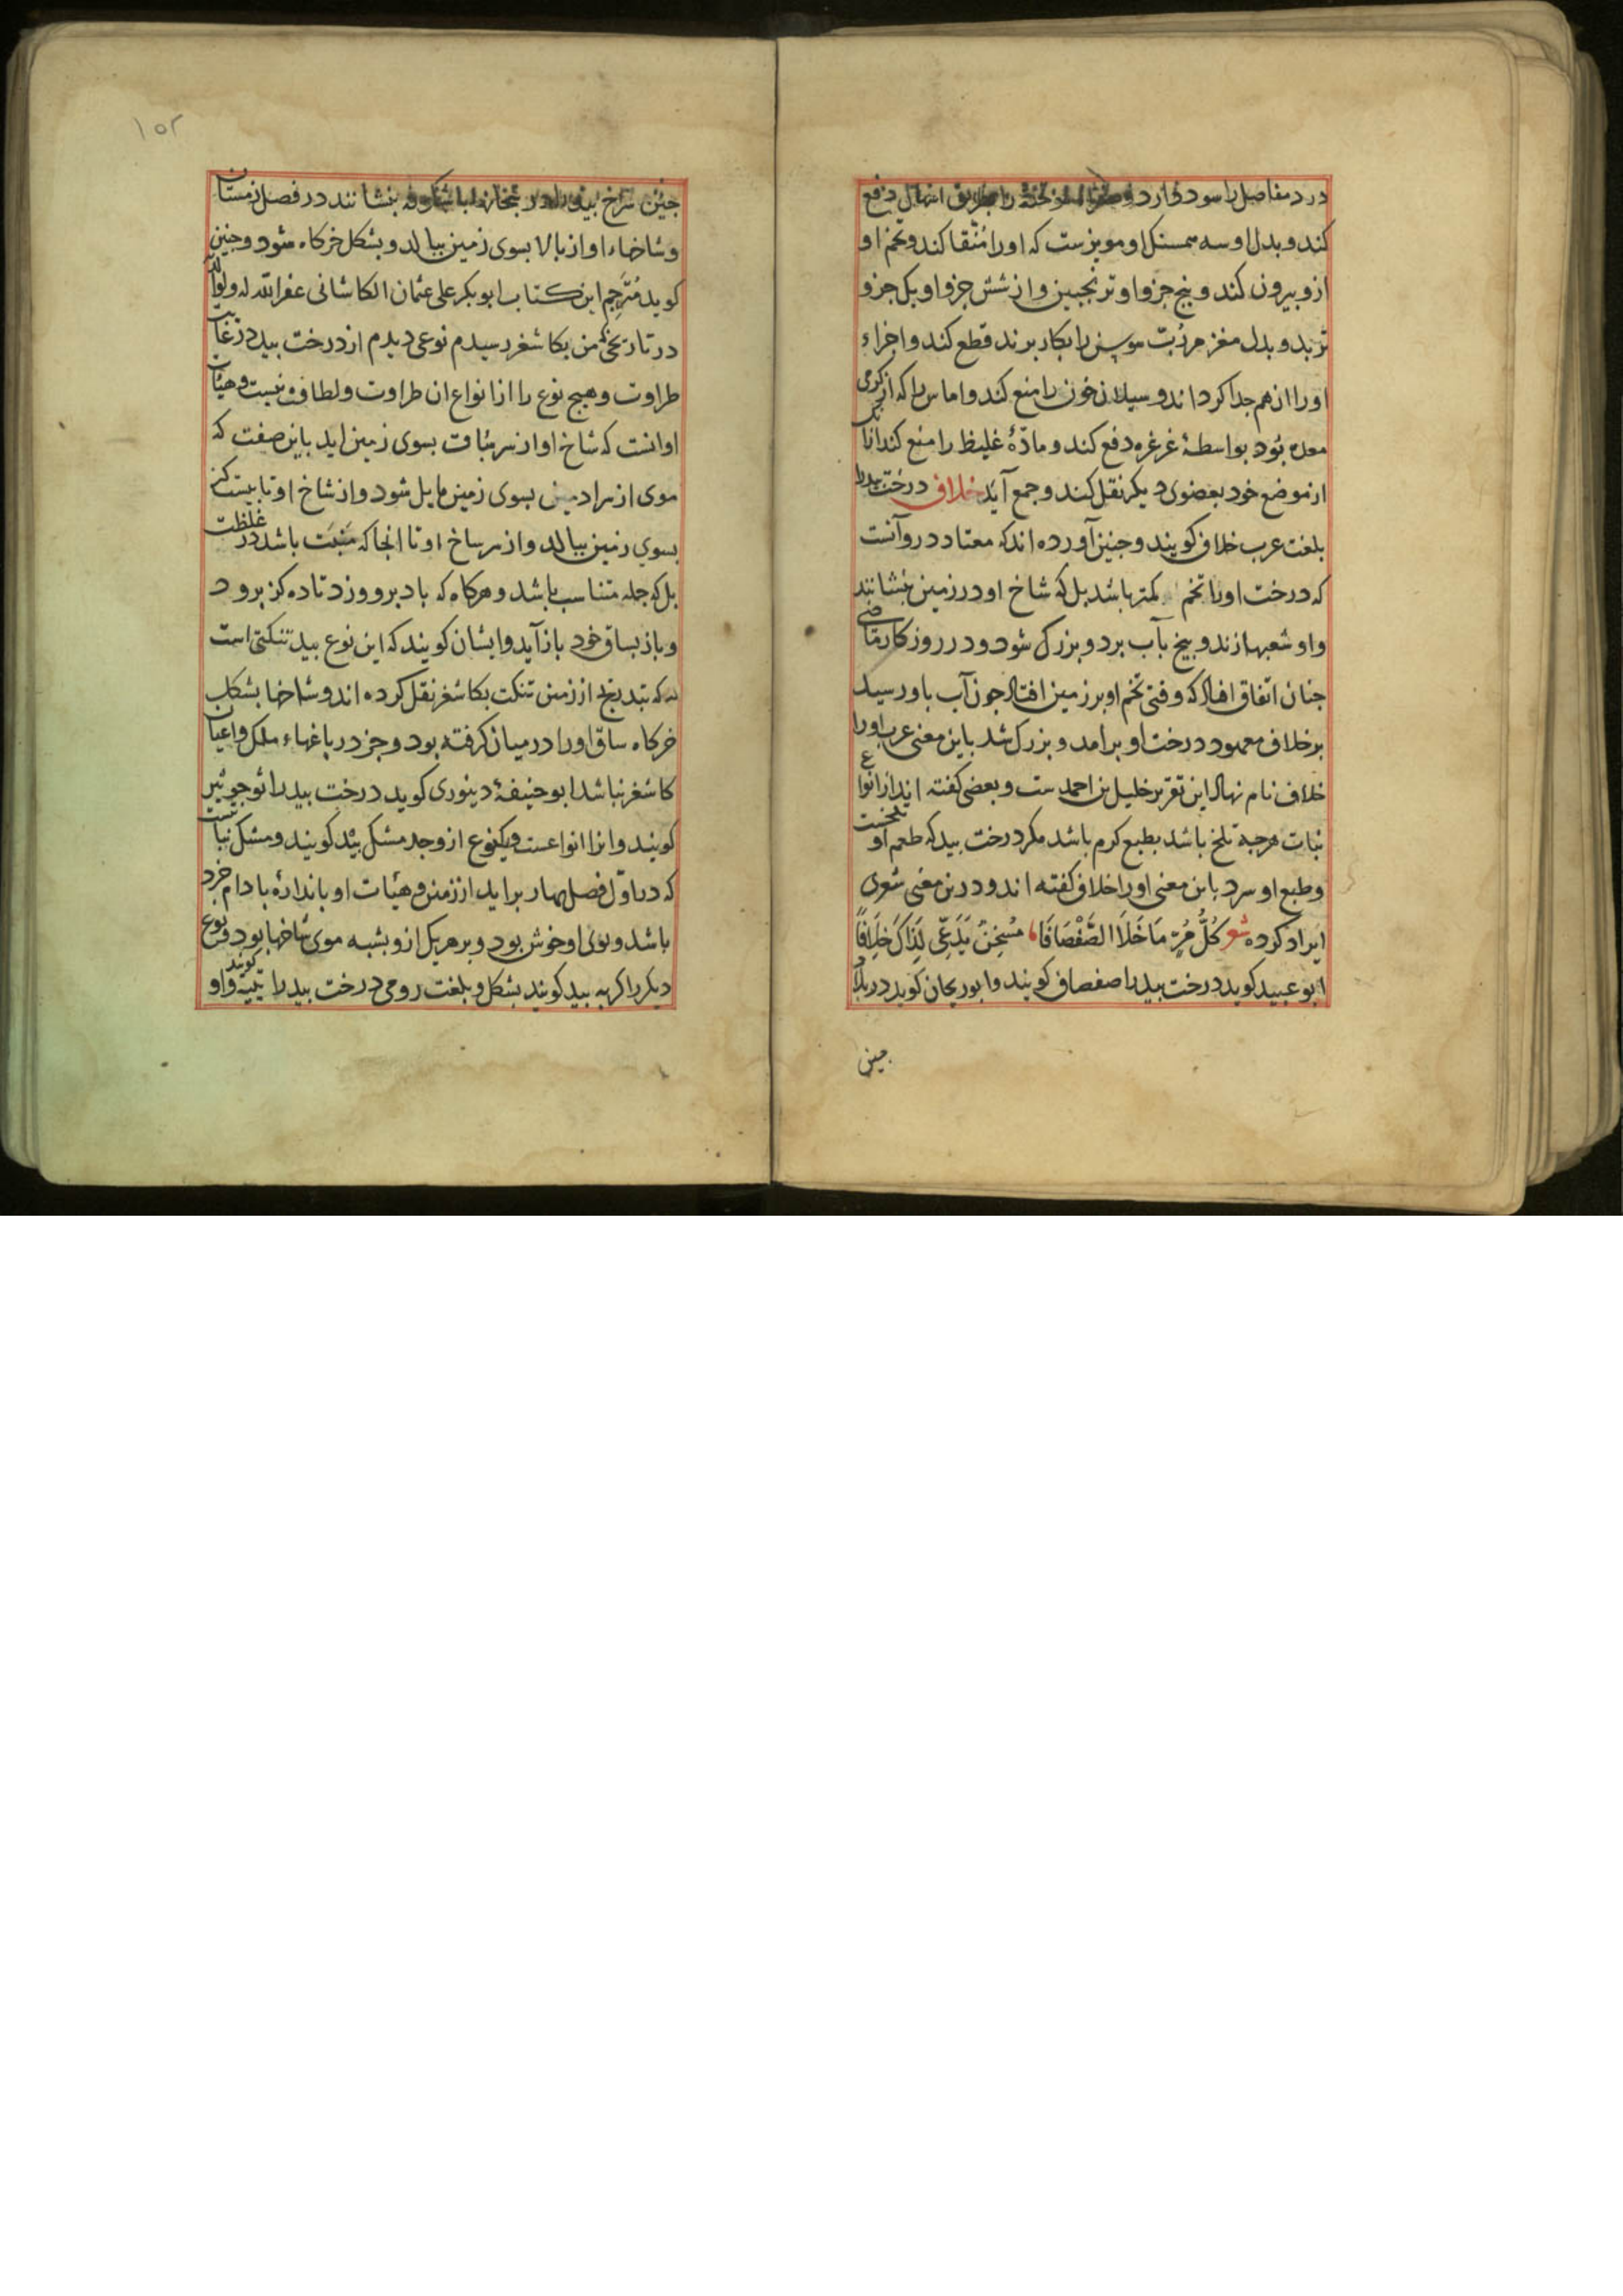 درد مفاصل را سود دارد و بطریق اسهال دفع
کند و بدل او سه همسنک او مویزست که اورا منقا کند و تخم او
ازو بیرون کند و پنج جزو او ترنجبین و از شش جزو او یک جزو
تربد و بدل مغز مرتب سوسن را بکار برند قطع کند و اجزاء
اورا از هم جدا کرداند و سیلان خون را منع کند و اماس را که از کرمی
معده بود بواسطهٔ غرغره دفع کند و مادّهٔ غلیظ را منع کند از آنک
از موضع خود بعضوی دیکر نقل کند و جمع آید خلاف درخت بید را
بلغت عرب خلاف کویند و جنین آورده اند که معتاد درو آنست
که درخت اورا تخم کمتر باشد بل که شاخ او در زمین بنشانند
و او شعبها زند و بیخ بآب برد و بزرک شود و در روزکار ماضی
جنان اتفاق افتاد که وقتی تخم او بر زمین افتاد جون آب باو رسید
بر خلاف معهود درخت او برامد و بزرک شد باین معنی عرب اورا
خلاف نام نهاد این تقریر خلیل بن احمدست و بعضی کفته اند از انواع
نبات هرجه تلخ باشد بطبع کرم باشد مکر درخت بید که طعم او تلخست
و طبع او سرد باین معنی اورا خلاف کفته اند و درین معنی شعری
ایراد کرده شعر کُلُّ مُرٍّ مَا خَلَا الصَّفْصَافَا مُسْخِنٌ یُدْعَی لِذَاکَ خِلَافًا
ابو عبید کوید درخت بید را صفصاف کویند و ابو ریحان کوید در بلاد
جین
۱۵۲
جین شاخ بید را بنشانند در فصل زمستان
و شاخهاء او از بالا بسوی زمین ببالد و بشکل خرکاه شود و جنین
کوید مترجم این کتاب ابوبکر علی عثمان الکاشانی غفر الله له ولوالدیه
در تاریخی که من بکاشغر رسیدم نوعی دیدم از درخت بید در غایت
طراوت و هیچ نوع را از انواع ان طراوت و لطافت نیست و هیأت
او انست که شاخ او از سر نبات بسوی زمین اید باین صفت که
موی از سر ادمی بسوی زمین مایل شود و از شاخ او تا بیست کز
بسوی زمین ببالد و از سر شاخ او تا انجا که منبت باشد در غلظت
بل که جمله متناسب باشد و هرکاه که باد برو وزد تا ده کز برود
و باز بساق خود باز آید و ایشان کویند که این نوع بید تنکتی است
که بتدریج از زمین تنکت بکاشغر نقل کرده اند و شاخها بشکل
خرکاه ساق اورا در میان کرفته بود و جز در باغهاء ملک و اعیان
کاشغر نباشد ابو حنیفهٔ دینوری کوید درخت بید را
کویند و انرا انواعست و یکنوع ازو جد مشک بید کویند و مشک نباتیست
که در اوّل فصل بهار براید از زمین و هیأت او باندازهٔ بادام خرد
باشد و بوی او خوش بود و بر هریک ازو بشبه موی شاخها بود و نوع
دیکر را کربه بید کویند بشکل و بلغت رومی درخت بید را کویند و او